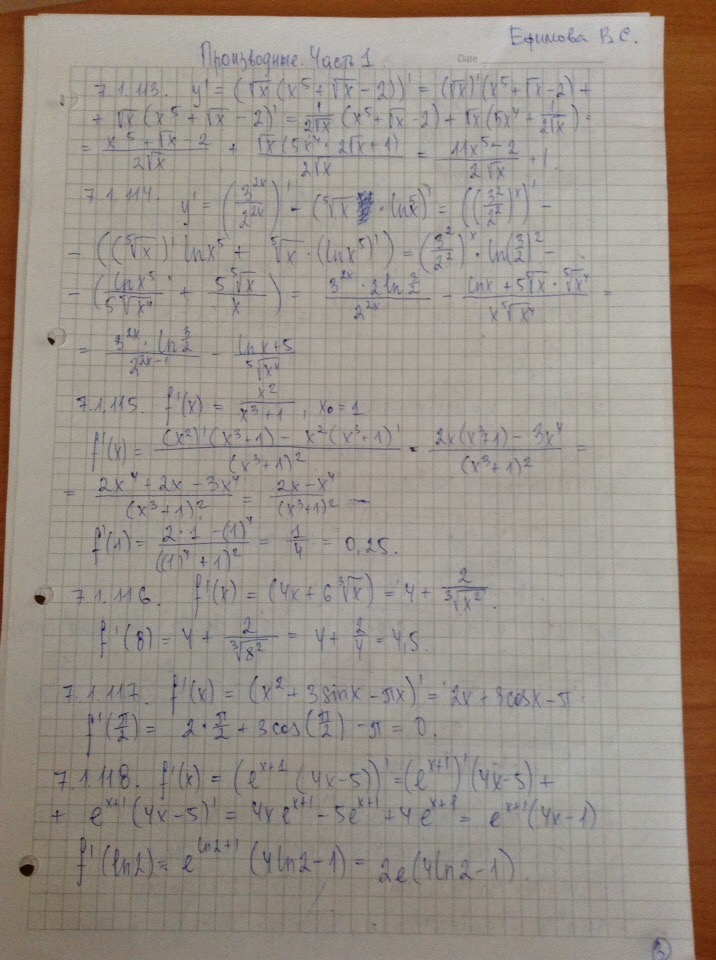 Ефимова В.С.
Производные. Часть 1
Date
7.1.113. y' = (√x (x⁵+√x−2))' = (√x)'(x⁵+√x−2) +
+ √x (x⁵+√x−2)' = 1/(2√x) (x⁵+√x−2) + √x (5x⁴ + 1/(2√x)) =
= (x⁵+√x−2)/(2√x) + (√x (5x⁴ · 2√x+1))/(2√x) = (11x⁵−2)/(2√x) + 1.
7.1.114. y' = (3^(2x)/2^(2x))' − (⁵√x · lnx⁵)' = ((3²/2²)^x)' −
− ((⁵√x)' lnx⁵ + ⁵√x · (lnx⁵)') = (3²/2²)^x · ln(3/2)² −
− (lnx⁵/(5 ⁵√x⁴) + (5 ⁵√x)/x) = (3^(2x) · 2ln 3/2)/2^(2x) − (lnx + 5 ⁵√x · ⁵√x⁴)/(x ⁵√x⁴) =
= (3^(2x) · ln 3/2)/2^(2x−1) − (lnx+5)/⁵√x⁴
7.1.115. f'(x) = x²/(x³+1), x₀ = 1
f'(x) = ((x²)'(x³+1) − x²(x³+1)')/(x³+1)² = (2x(x³+1) − 3x⁴)/(x³+1)² =
= (2x⁴+2x−3x⁴)/(x³+1)² = (2x−x⁴)/(x³+1)² −
f'(1) = (2·1 −(1)⁴)/((1)⁴+1)² = 1/4 = 0,25.
7.1.116. f'(x) = (4x+6 ³√x) = 4 + 2/³√x².
f'(8) = 4 + 2/³√8² = 4 + 2/4 = 4,5.
7.1.117. f'(x) = (x²+3sinx−πx)' = 2x+3cosx−π
f'(π/2) = 2·π/2 + 3cos(π/2) −π = 0.
7.1.118. f'(x) = (e^(x+1) (4x−5))' = (e^(x+1))'(4x−5) +
+ e^(x+1) (4x−5)' = 4xe^(x+1) − 5e^(x+1) + 4e^(x+1) = e^(x+1)(4x−1)
f'(ln2) = e^(ln2+1) (4ln2−1) = 2e(4ln2−1)